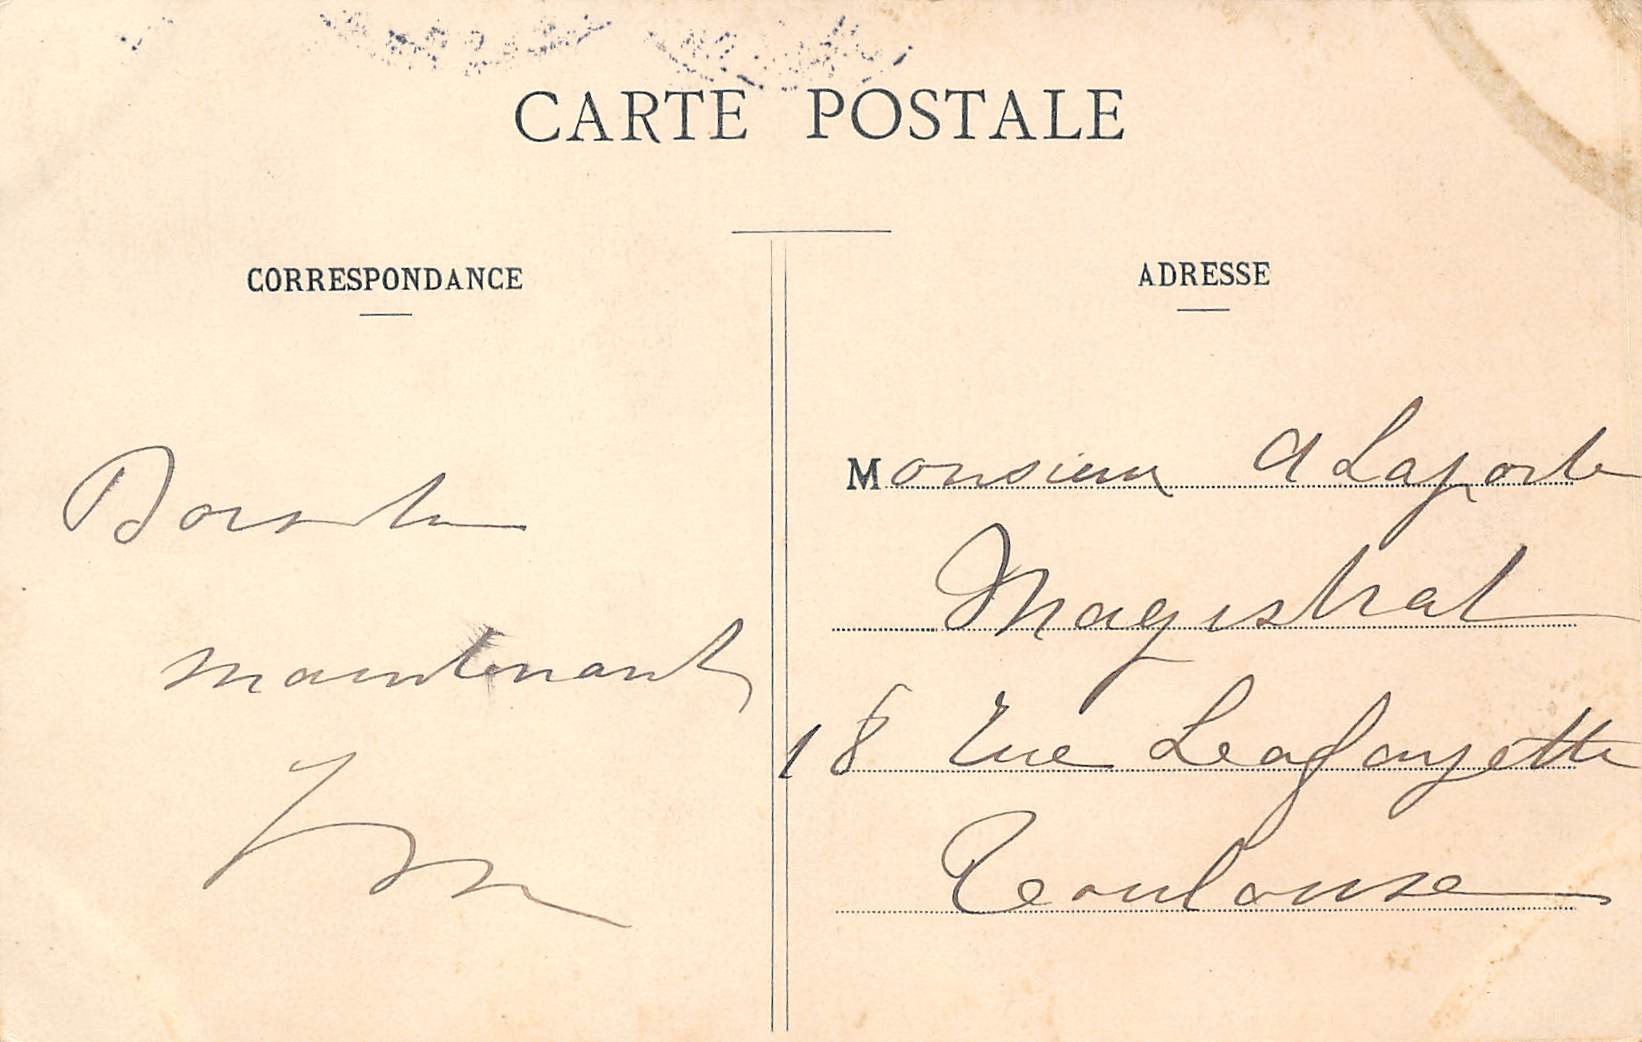 CARTE POSTALE
CORRESPONDANCE
maintenant
ADRESSE
Monsieur A Laporte
Magistrat
18 Rue Leafayette
Toulouse